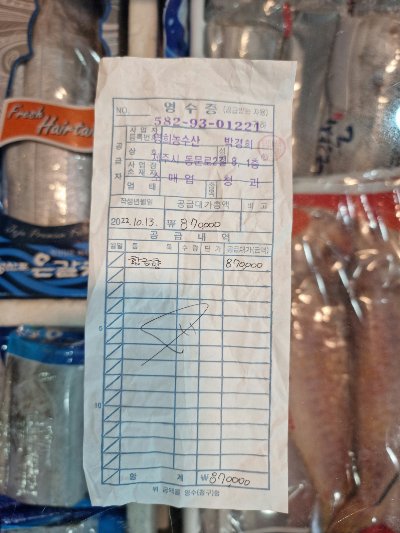 Fresh
Hairtail
은갈치
NO.
영수증 (공급받는 자용)
582-93-01221
공급자
사업자
등록번호
상호
명희농수산 박경희
사업장
소재지
제주시 동문로2길 8, 1층
업태
소매업
종목
청과
작성년월일 공급대가총액 비고
2022.10.13. ₩870,000
공급내역
월일 품목 수량 단가 공급대가(금액)
870,000
5
10
합계 ₩870,000
위 금액을 영수(청구)함